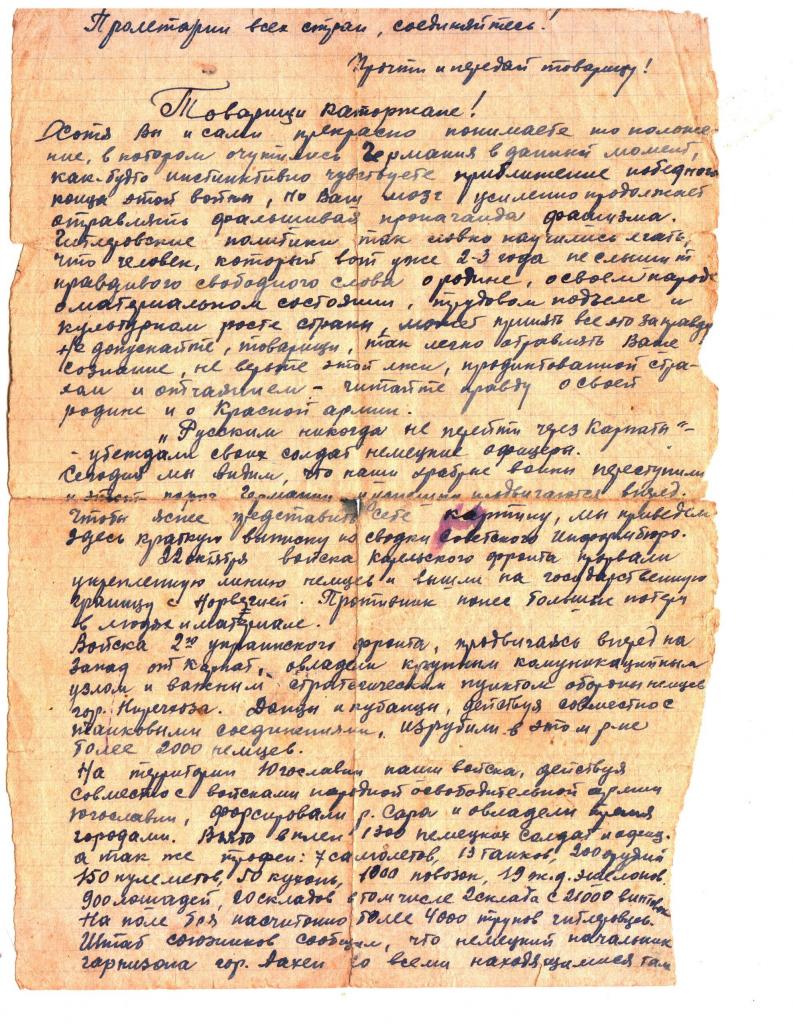 Пролетарии всех стран, соединяйтесь!
Прочти и передай товарищу!
Товарищи каторжане!
Хотя Вы и сами прекрасно понимаете то положе-
ние, в котором очутились Германия в данный момент,
как-будто инстинктивно чувствуете приближение победного
конца этой войны, но Ваш мозг усиленно продолжает
отравлять фальшивая пропаганда фашизма.
Гитлеровские политики так ловко научились лгать,
что человек, который вот уже 2-3 года не слышит
правдивого свободного слова о родине, о своем народе
о материальном состоянии, трудовом подъеме и
культурном росте страны, может принять все это за правду
Не допускайте, товарищи, так легко отравлять Ваше
сознание, не верьте этой лжи, продиктованной стра-
хом и отчаянием - читайте правду о своей
родине и о Красной армии.
„Русским никогда не перейти через Карпаты" -
- убеждали своих солдат немецкие офицера.
Сегодня мы видим, что наши храбрые воины переступили
и этот порог Германии и продвигаются вперед.
Чтобы яснее представить себе картину, мы приведем
здесь краткую выписку из сводки Советского Информбюро.
22 октября войска Карельского фронта прорвали
укрепленную линию немцев и вышли на государственную
границу с Норвегией. Противник понес большие потери
в людях и материале.
Войска 2го украинского фронта, продвигаясь вперед на
запад от Карпат, овладели крупным комуникацийным
узлом и важным стратегическим пунктом обороны немцев
гор. Ниредьгоза. Донцы и кубанцы, действуя совместно с
танковыми соединениями, изрубили в этом р-не
более 2000 немцев.
На территории Югославии наши войска, действуя
совместно с войсками народной освободительной армии
Югославии, форсировали р. Сара и овладели тремя
городами. Взято в плен 1300 немецких солдат и офиц.
а так же трофеи: 7 самолетов, 13 танков, 200 орудий
150 пулеметов, 50 кухонь, 1000 повозок, 19 ж.д. эшелонов.
900 лошадей, 20 складов в том числе 2 склада с 21000 винтовок
На поле боя насчитано более 4000 трупов гитлеровцев.
Штаб союзников сообщил, что немецкий начальник
гарнизона гор. Аахен со всеми находящимися там